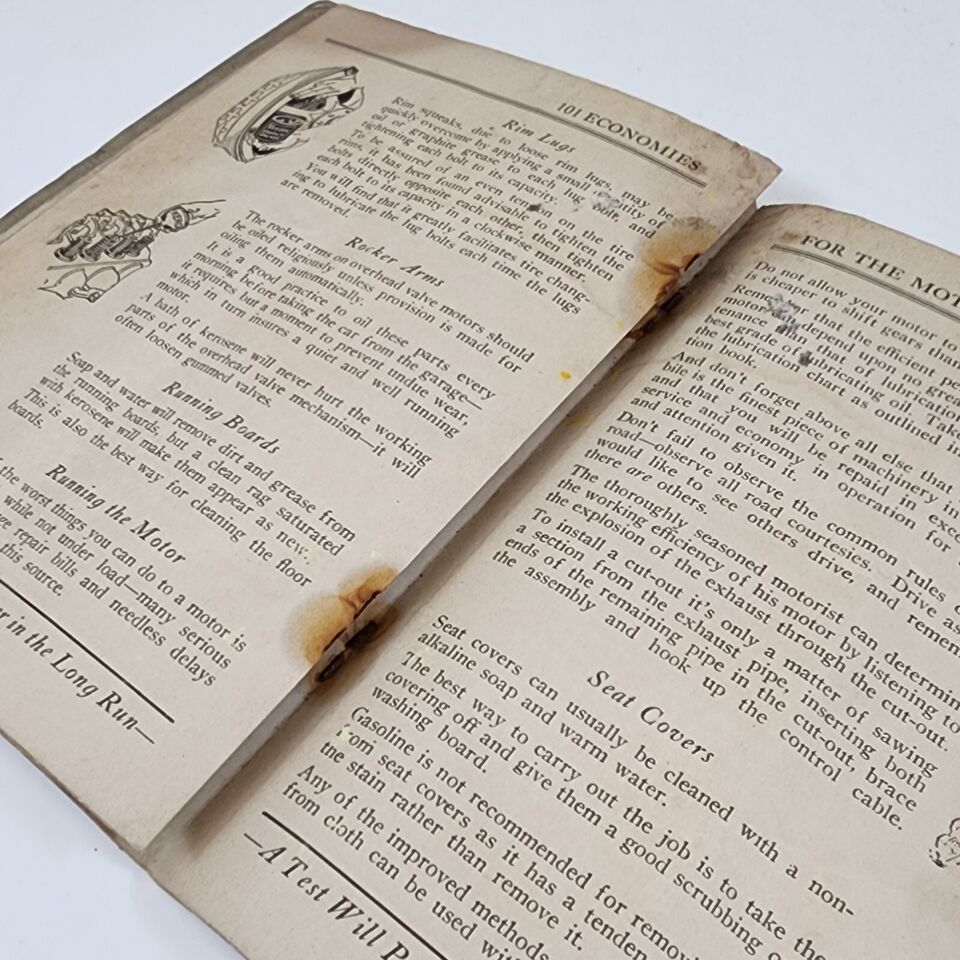 101 ECONOMIES
Rim Lugs
Rim squeaks, due to loose rim lugs, may be
quickly overcome by applying a small quantity of
oil or graphite grease to each lug bolt, and
tightening each bolt to its capacity.
To be assured of an even tension on the tire
rims, it has been found advisable to tighten the
bolts directly opposite each other, then tighten
each bolt to its capacity in a clockwise manner.
You will find that it greatly facilitates tire chang-
ing to lubricate the lug bolts each time the lugs
are removed.
Rocker Arms
The rocker arms on overhead valve motors should
be oiled religiously unless provision is made for
oiling them automatically.
It is a good practice to oil these parts every
morning before taking the car from the garage—
it requires but a moment to prevent undue wear,
which in turn insures a quiet and well running
motor.
A bath of kerosene will never hurt the working
parts of the overhead valve mechanism—it will
often loosen gummed valves.
Running Boards
Soap and water will remove dirt and grease from
the running boards, but a clean rag saturated
with kerosene will make them appear as new.
This is also the best way for cleaning the floor
boards.
Running the Motor
the worst things you can do to a motor is
while not under load—many serious
repair bills and needless delays
this source.
in the Long Run—
FOR THE MOT
Do not allow your motor to
is cheaper to shift gears than
Remember that the efficient pe
motor depend upon no grea
tenance than that of lubrication
best grade of lubricating oil. Take
the lubrication chart as outlined in
tion book.
And don't forget above all else that
bile is the finest piece of machinery
and that you will be repaid in exce
service and economy in operation for
and attention given it.
Don't fail to observe the common rules o
road—observe all road courtesies. Drive as
would like to see others drive, and remem
there are others.
The thoroughly seasoned motorist can determin
the working efficiency of his motor by listening to
the explosion of the exhaust through the cut-out.
To install a cut-out it's only a matter of sawing
a section from the exhaust pipe, inserting both
ends of the remaining pipe in the cut-out, brace
the assembly and hook up the control
cable.
Seat Covers
Seat covers can usually be cleaned with a non-
alkaline soap and warm water.
The best way to carry out the job is to take the
covering off and give them a good scrubbing o
washing board.
Gasoline is not recommended for removi
from seat covers as it has a tenden
the stain rather than remove it.
Any of the improved methods
from cloth can be used wit
—A Test Will P